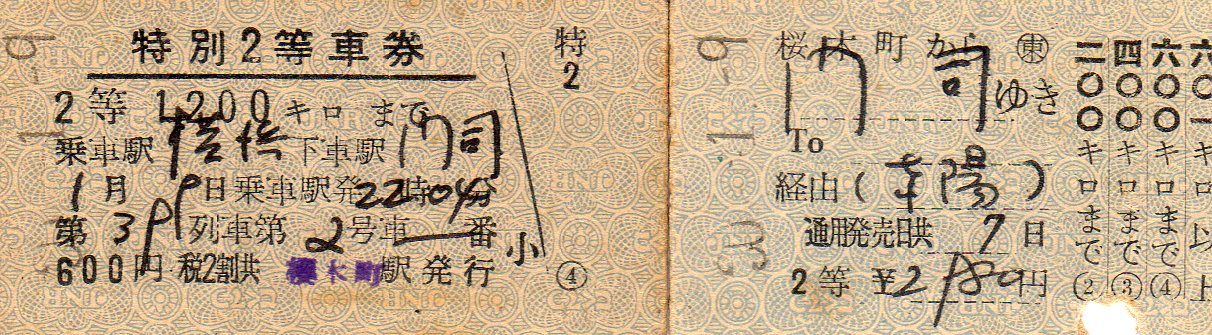 特別2等車券
特2
2等 1200キロまで
乗車駅 横浜 下車駅 門司
1月9日乗車駅発22時04分
第39列車第2号車 番
小
600円 税2割共 櫻木町駅発行
④
桜木町から ㊤東
門司ゆき
To
経由(東陽)
通用発売日共 7日
2等 ¥2,180円
二〇〇キロまで②
四〇〇キロまで③
六〇〇キロまで④
六〇一キロ以上
-1.-9